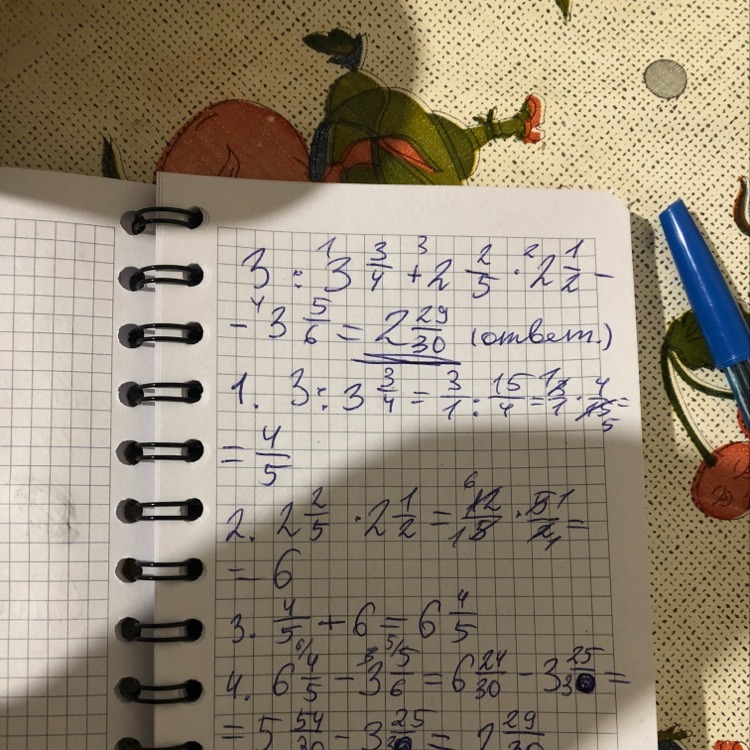 3 : 3 3/4 + 2 2/5 · 2 1/2 −
− 3 5/6 = 2 29/30 (ответ.)
1. 3 : 3 3/4 = 3/1 : 15/4 = 3/1 · 4/15 =
= 4/5
2. 2 2/5 · 2 1/2 = 12/5 · 5/2 =
= 6
3. 4/5 + 6 = 6 4/5
4. 6 4/5 − 3 5/6 = 6 24/30 − 3 25/30 =
= 5 54/30 − 3 25/30 = 2 29/30